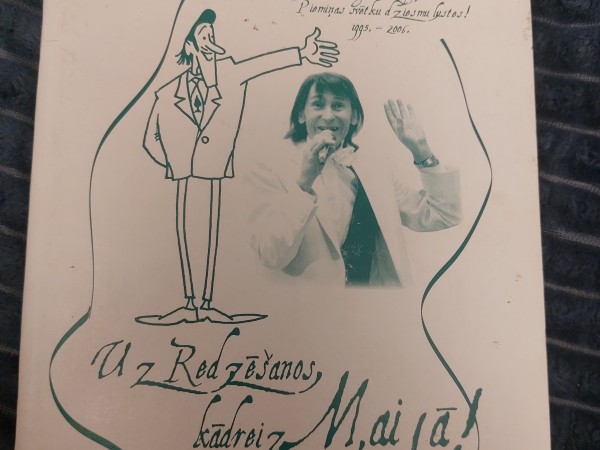 Piemiņas svētku dziesmu lustes!
1995. - 2006.
Uz Redzēšanos,
kādreiz Maijā!